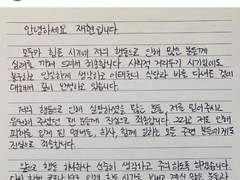 안녕하세요 재현입니다
모두가 힘든 시기에 저의 행동으로 인해 많은 분들께
심려를 끼쳐 드려 죄송합니다. 사회적 거리두기 시기임에도
불구하고 안일하게 생각하고 이태원의 식당과 바를 다녀온 것에
대해서 깊이 반성하고 있습니다.
저의 행동으로 인해 실망하셨을 많은 분들, 저를 믿어주시고
응원해 주셨던 팬 분들께 진심으로 죄송합니다. 그리고 저로 인해
피해를 입게 된 멤버들, 회사, 함께 하는 모든 주변 분들에게도
진심으로 죄송합니다.
앞으로 행동 가사하나 신중히 생각하고 주의하도록 하겠습니다.